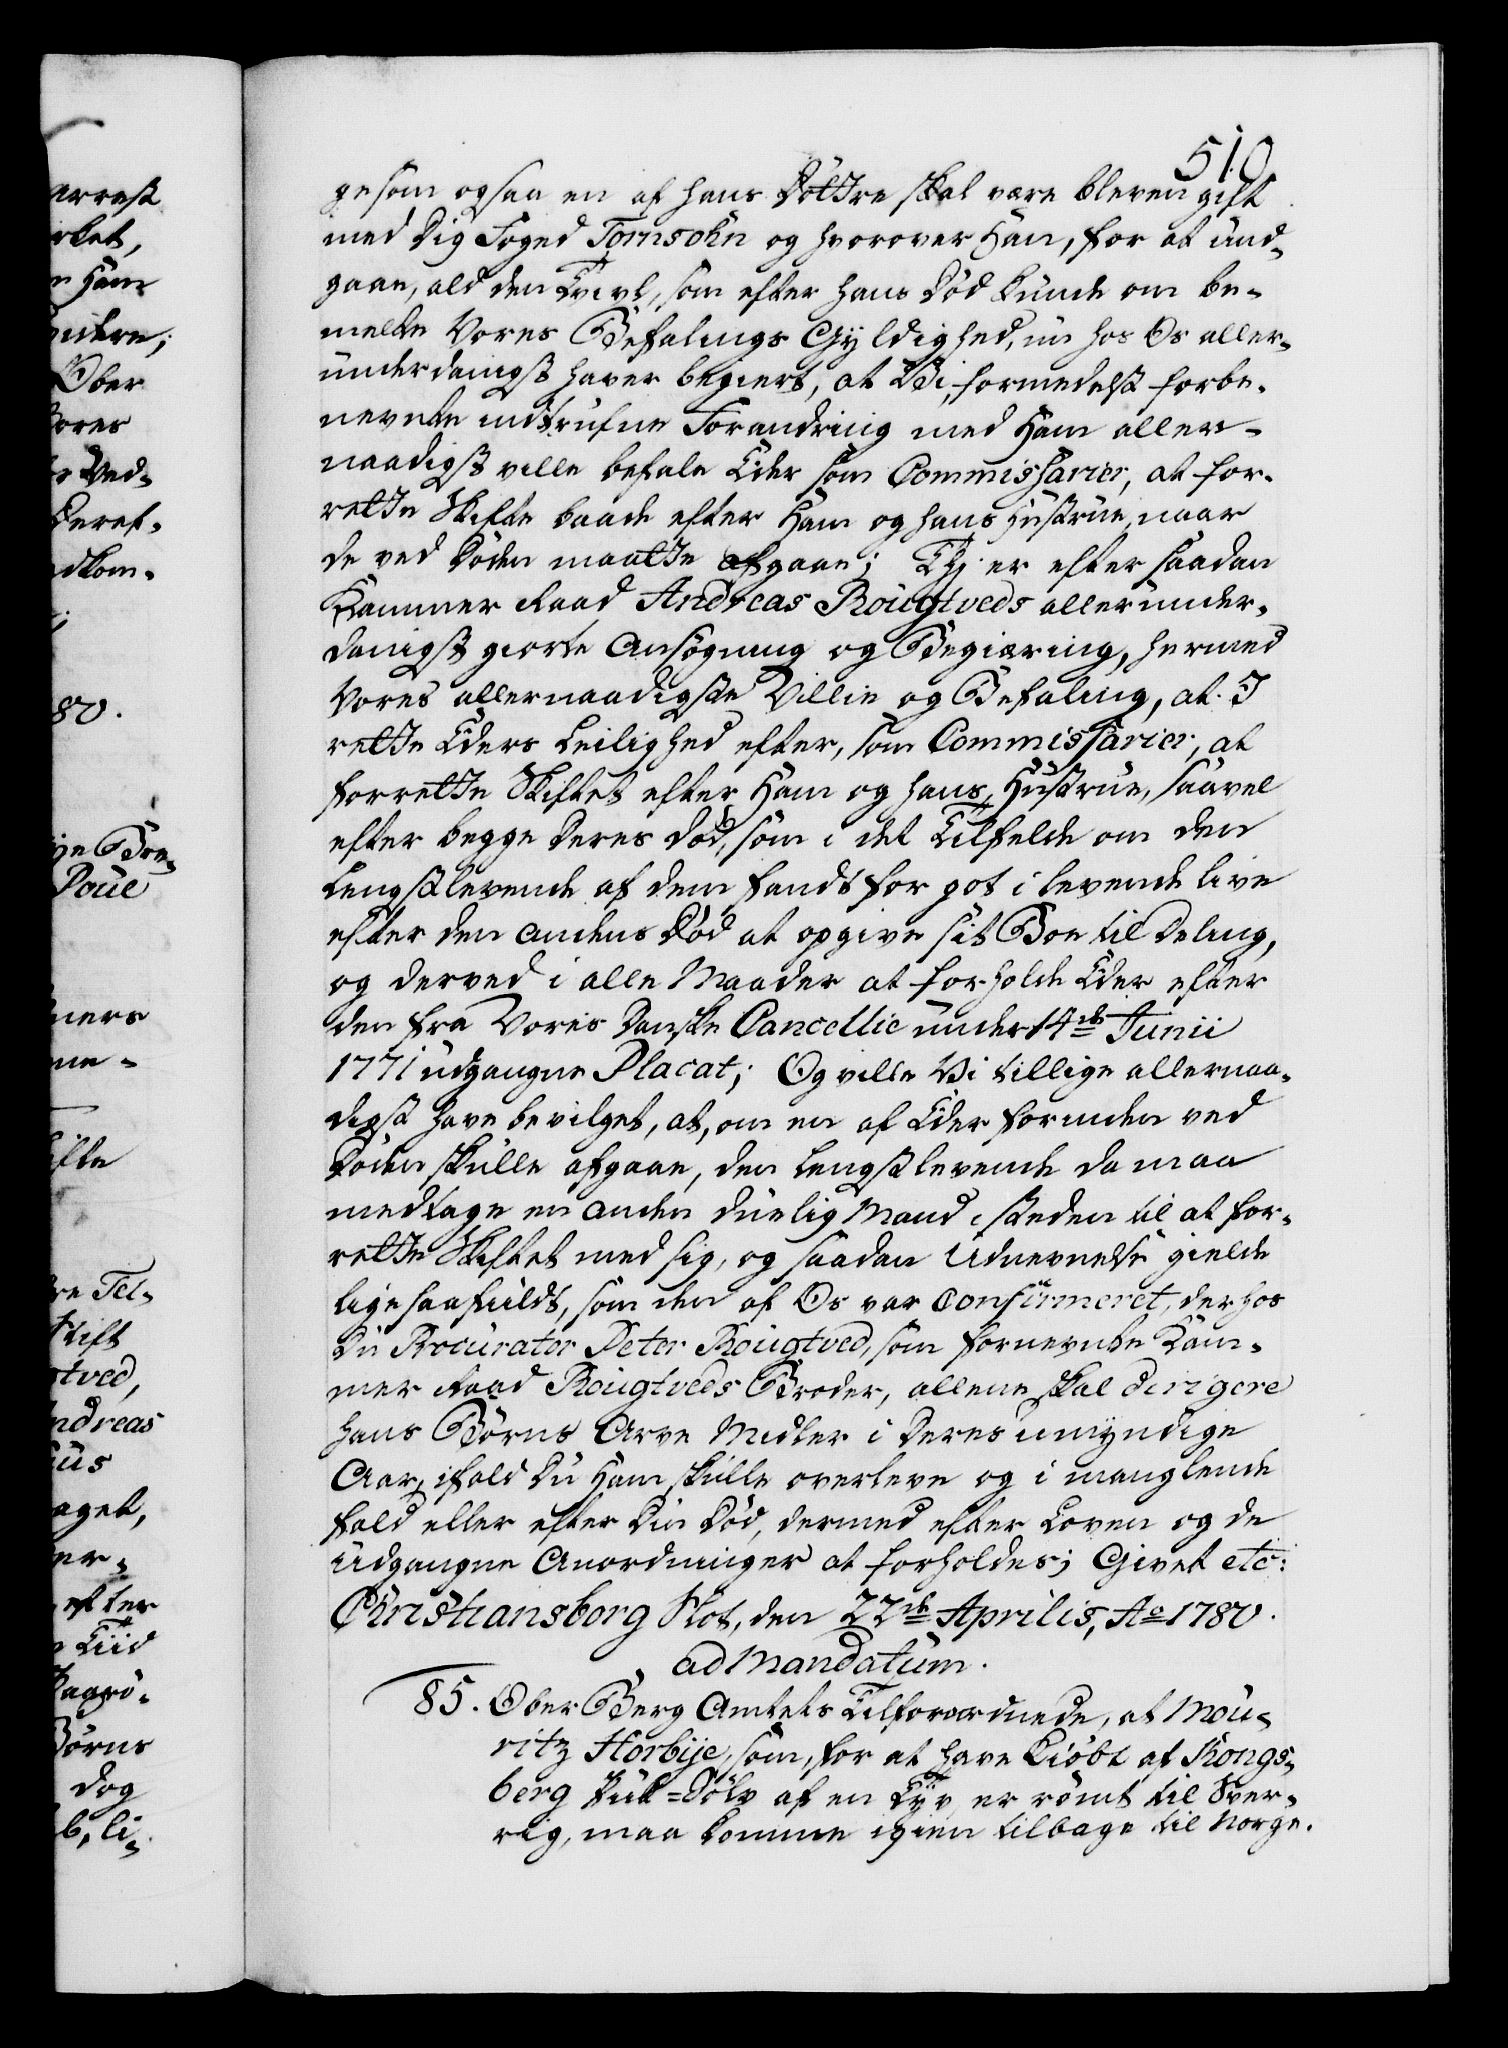 510
gesom ogsaa en af hans Döttre skal være bleven gift
med Dig Foged Tornsohn og hvorover Han, for at und-
gaae, ald den Tvivl, som efter hans Död kunde om be-
melte Vores Befalings Gyldighed, nu hos Os aller-
underdanigst haver begiert, at Vi, formedelst forbe-
nevnte indtrufne Forandring med Ham aller-
naadigst ville befale Eder som Commissarier, at for-
rette Skifte baade efter Ham og hans Hustrue, naar
de ved Döden maatte afgaae; Thi er efter saadan
Kammer Raad Andreas Rougtveds allerunder-
danigst giorte Ansögning og Begiæring, hermed
Vores allernaadigste Villie og Befaling, at I
rette Eders Leilighed efter, som Commissarier, at
forrette Skiftet efter Ham og hans Hustrue, saavel
efter begge Deres Död, som i det Tilfelde om den
Lengstlevende af dem fandt for got i levende Live
efter den andens Död at opgive sit Boe til Deling,
og derved i alle Maader at forholde Eder efter
den fra Vores Danske Cancellie under 14de Junii
1771 udgangne Placat; Og ville Vi tillige allernaa-
digst have bevilget, at, om en af Eder forinden ved
Döden skulle afgaae, den Lengstlevende da maa
medtage en anden duelig Mand i steden til at for-
rette Skiftet med sig, og saadan Udnevnelse gielde
lige saa fuldt, som den af Os var Confirmeret, der hos
Du Procurator Peter Rougtved, som fornevnte Kam-
mer Raad Rougtveds Broder, allene skal dirigere
hans Börns Arve Midler i Deres umyndige
Aar, ifald Du Ham skulle overleve og i manglende
fald eller efter Din Död, dermed efter Loven og de
udgangne Anordninger at forholdes; Givet etc:
Christiansborg Slot, den 22de Aprilis, Ao 1780.
ad Mandatum.
85. Ober Berg Amtets Tilforordnede, at Mou-
ritz Horbije, som, for at have kiöbt af Kongs-
berg Puk=Sölv af en Tyv, er römt til Sver-
rig, maa komme igien tilbage til Norge.